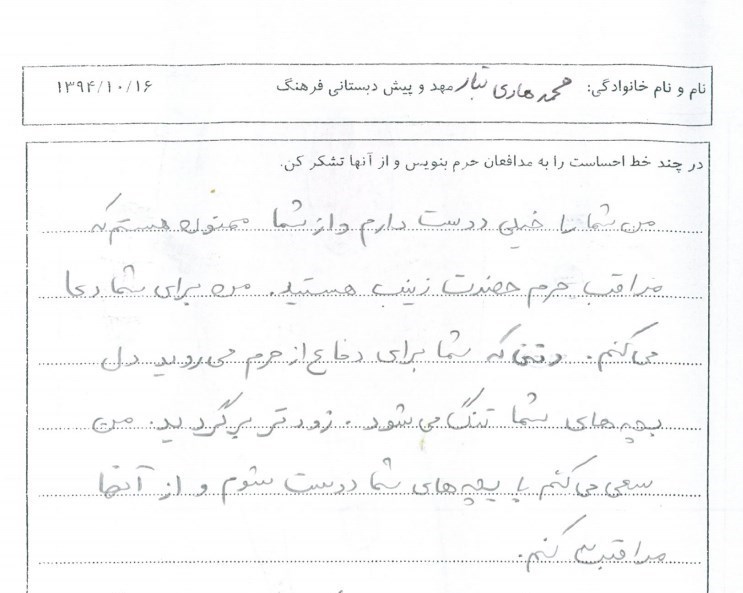 نام و نام خانوادگی: محمد هادی تبار مهد و پیش دبستانی فرهنگ ۱۳۹۴/۱۰/۱۶
در چند خط احساست را به مدافعان حرم بنویس و از آنها تشکر کن.
من شما را خیلی دوست دارم و از شما ممنون هستم که
مراقب حرم حضرت زینب هستید. من برای شما دعا
می کنم. وقتی که شما برای دفاع از حرم می روید دل
بچه های شما تنگ می شود. زودتر برگردید. من
سعی می کنم با بچه های شما دوست شوم و از آنها
مراقبت کنم.